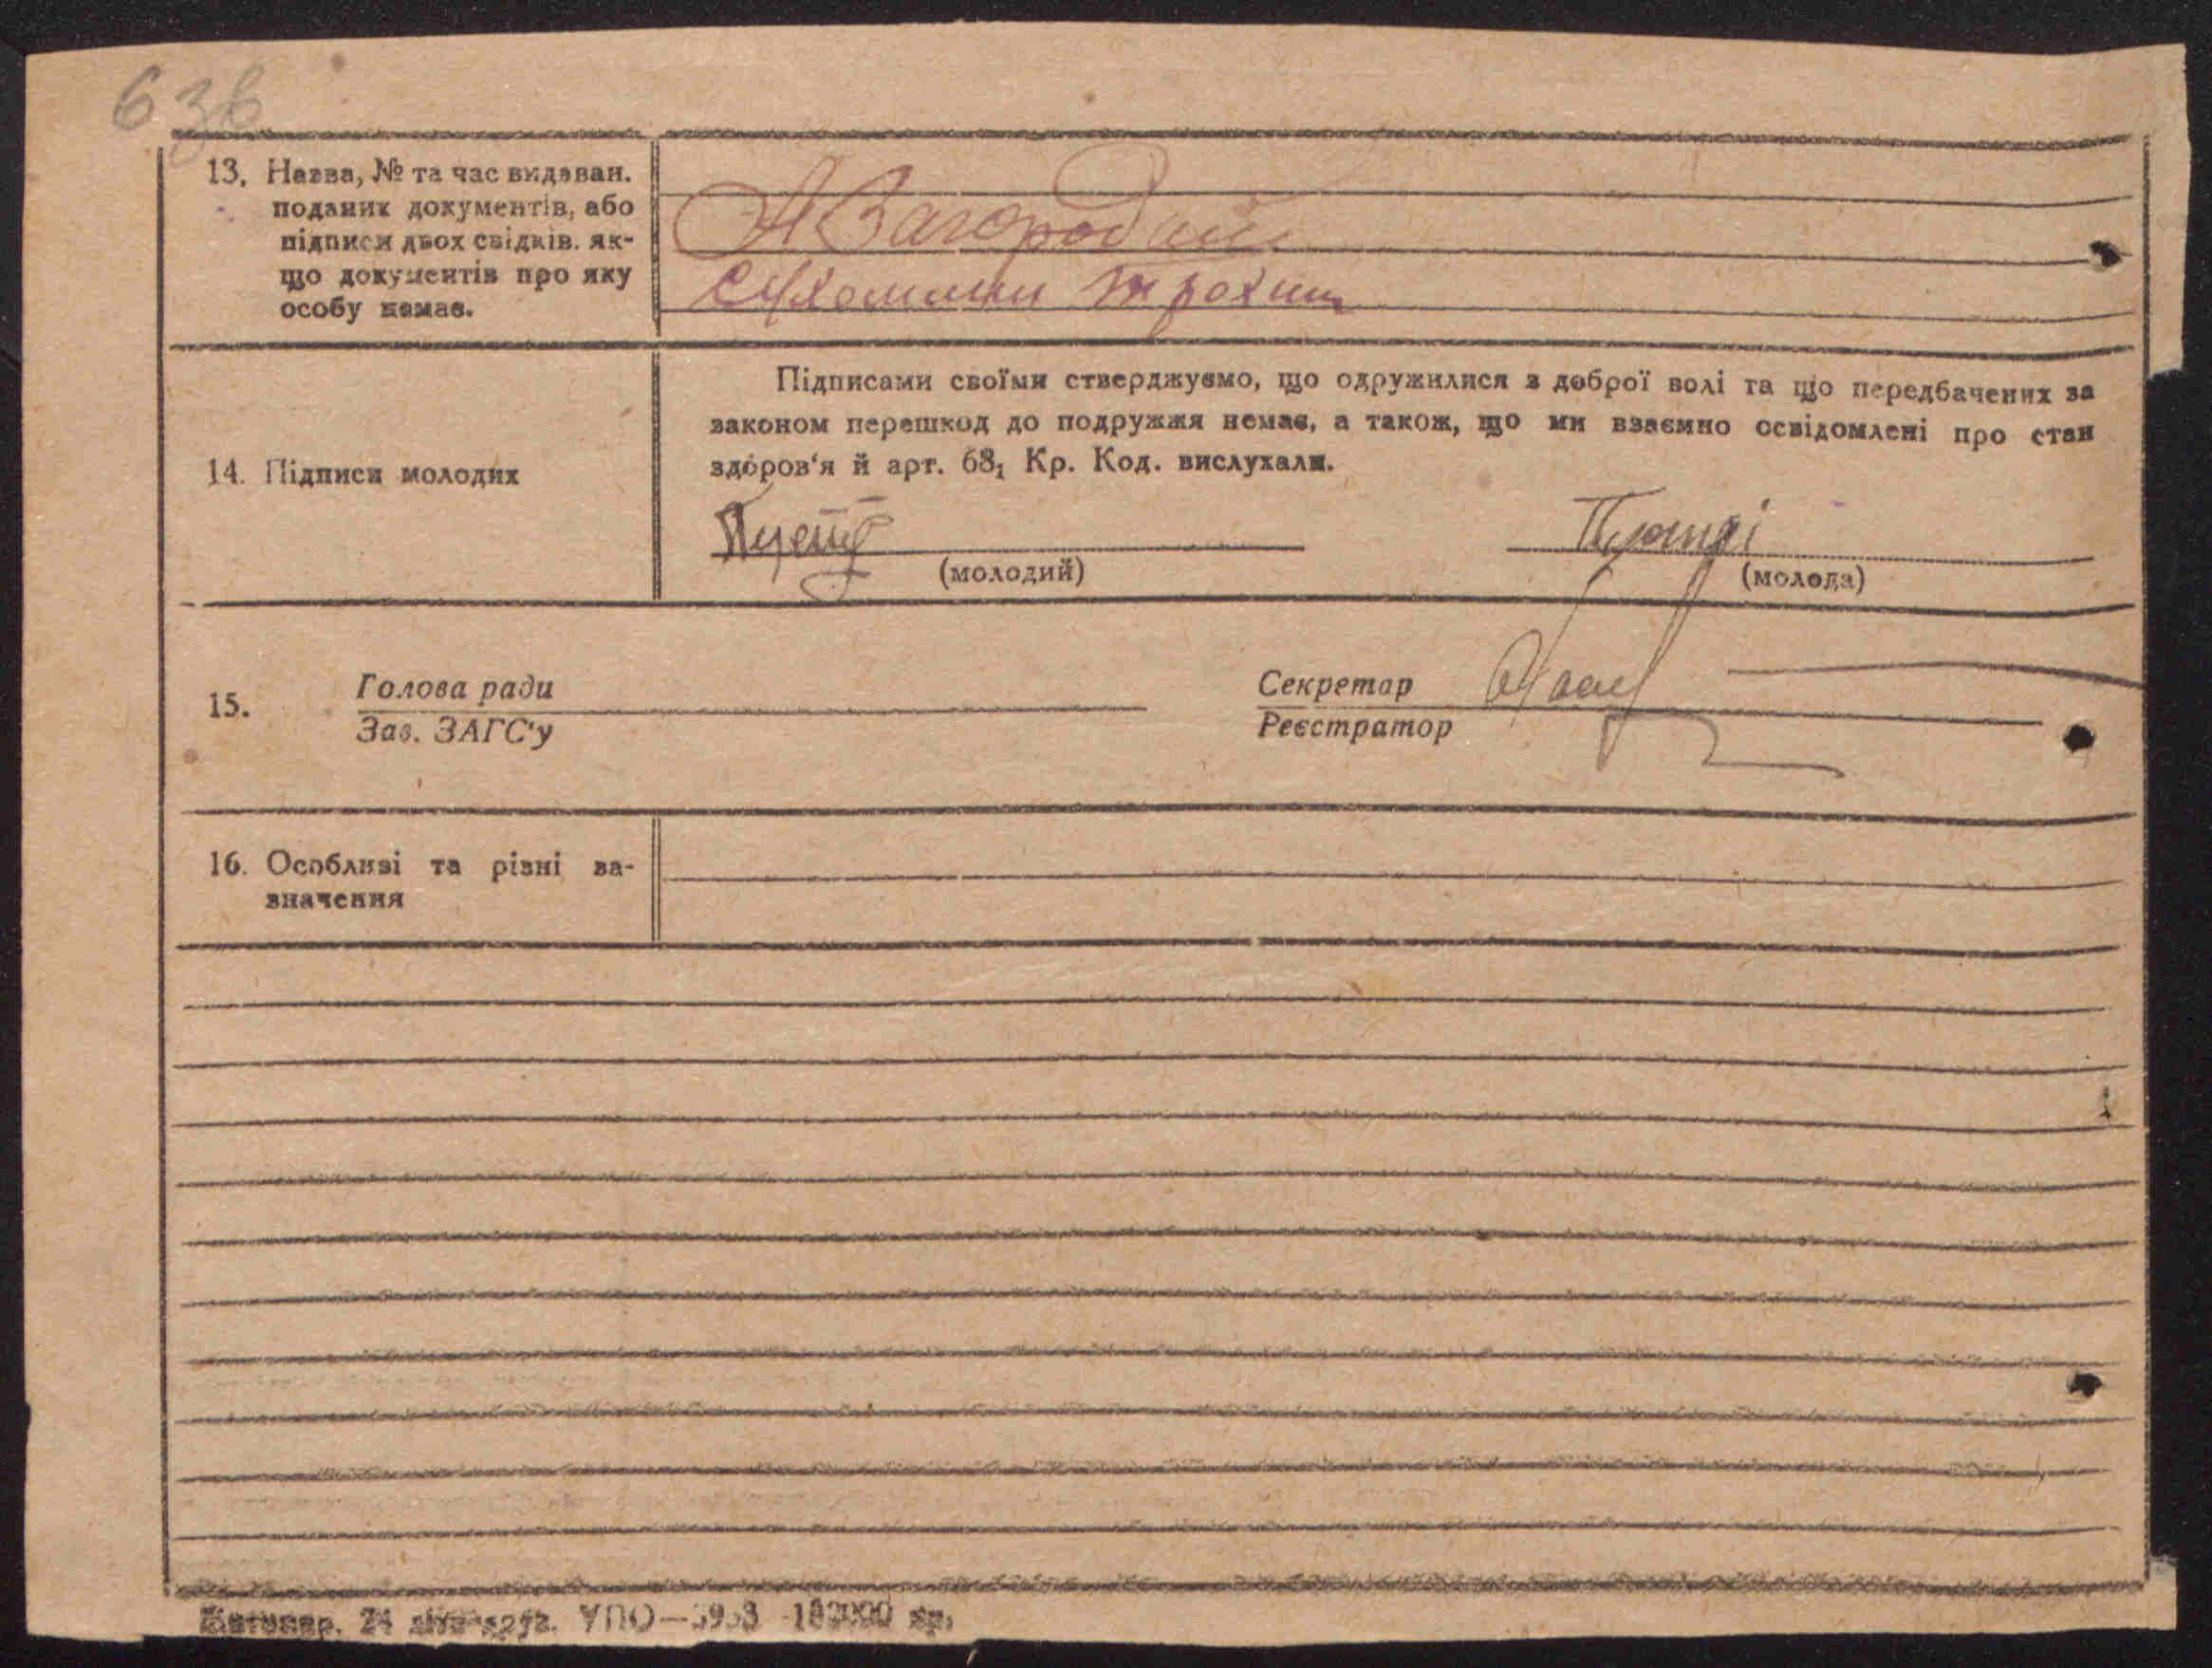 63в
13. Назва, № та час видаван.
поданих документів, або
підписи двох свідків, як-
що документів про яку
особу немає.
А Загородній
Сухомлин Трохим
Підписами своїми стверджуємо, що одружилися з доброї волі та що передбачених за
законом перешкод до подружжя немає, а також, що ми взаємно освідомлені про стан
здоров'я й арт. 68₁ Кр. Код. вислухали.
14. Підписи молодих
(молодий)
(молода)
15.
Голова ради
Зав. ЗАГС'у
Секретар
Реєстратор
16. Особливі та різні за-
значення
24 УПО—